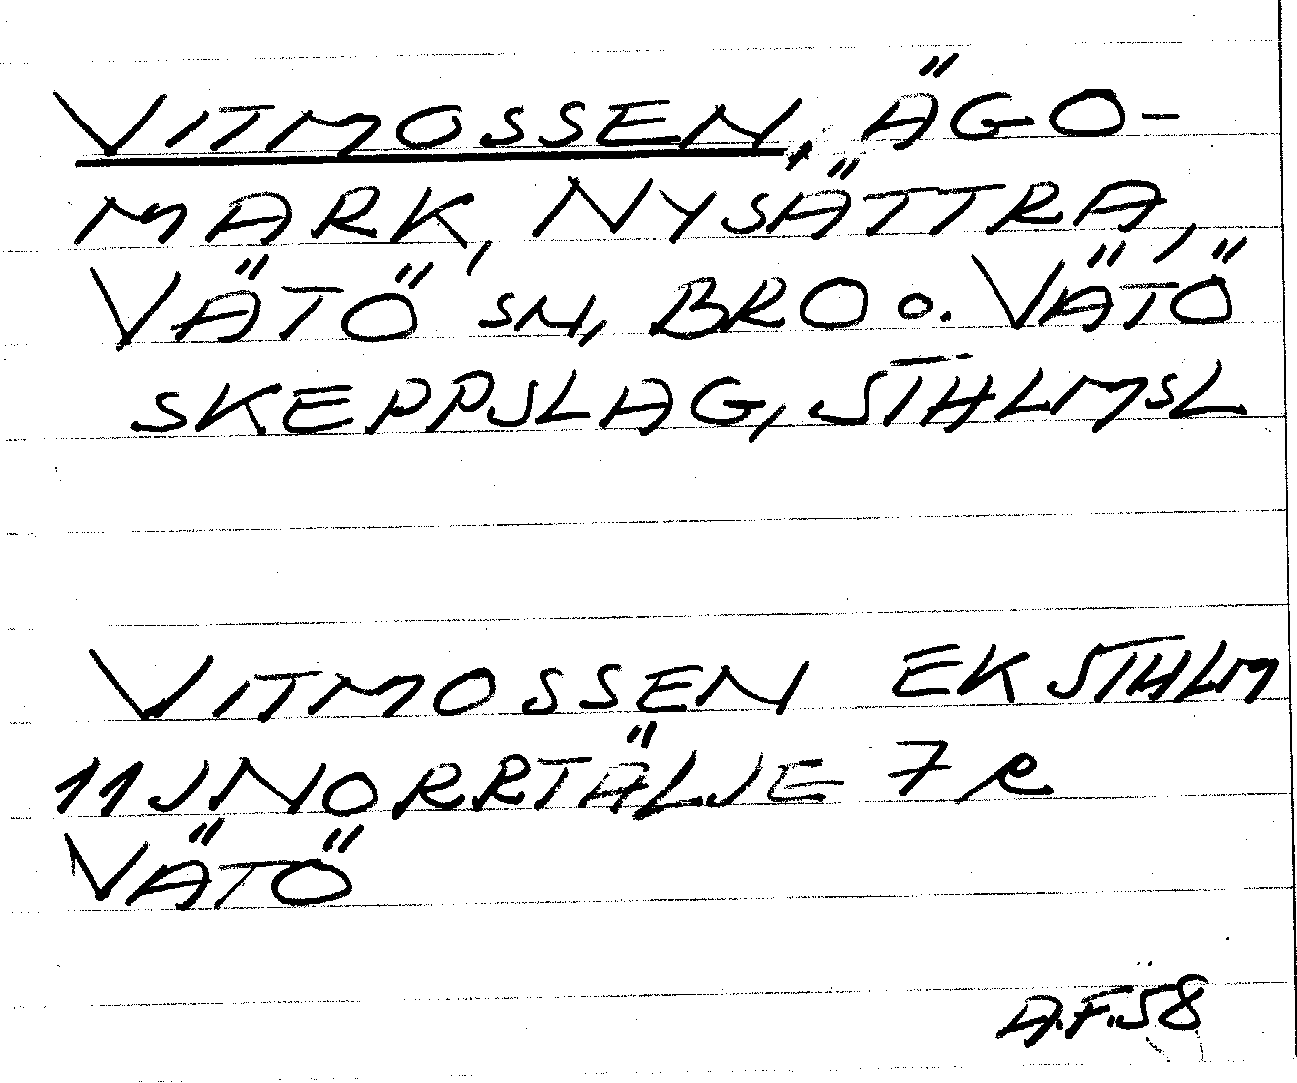 VITMOSSEN, ÄGO-
MARK, NYSÄTTRA,
VÄTÖ SN, BRO O. VÄTÖ
SKEPPSLAG, STHLMSL
VITMOSSEN EK STHLM
11J NORRTÄLJE 7 R
VÄTÖ
A.F.58